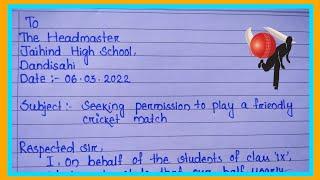 To
The Headmaster
Jaihind High School,
Dandisahi
Date :- 06.03.2022
Subject :- Seeking permission to play a friendly
cricket match
Respected Sir,
I, on behalf of the students of class 'ix',
that our half yearly